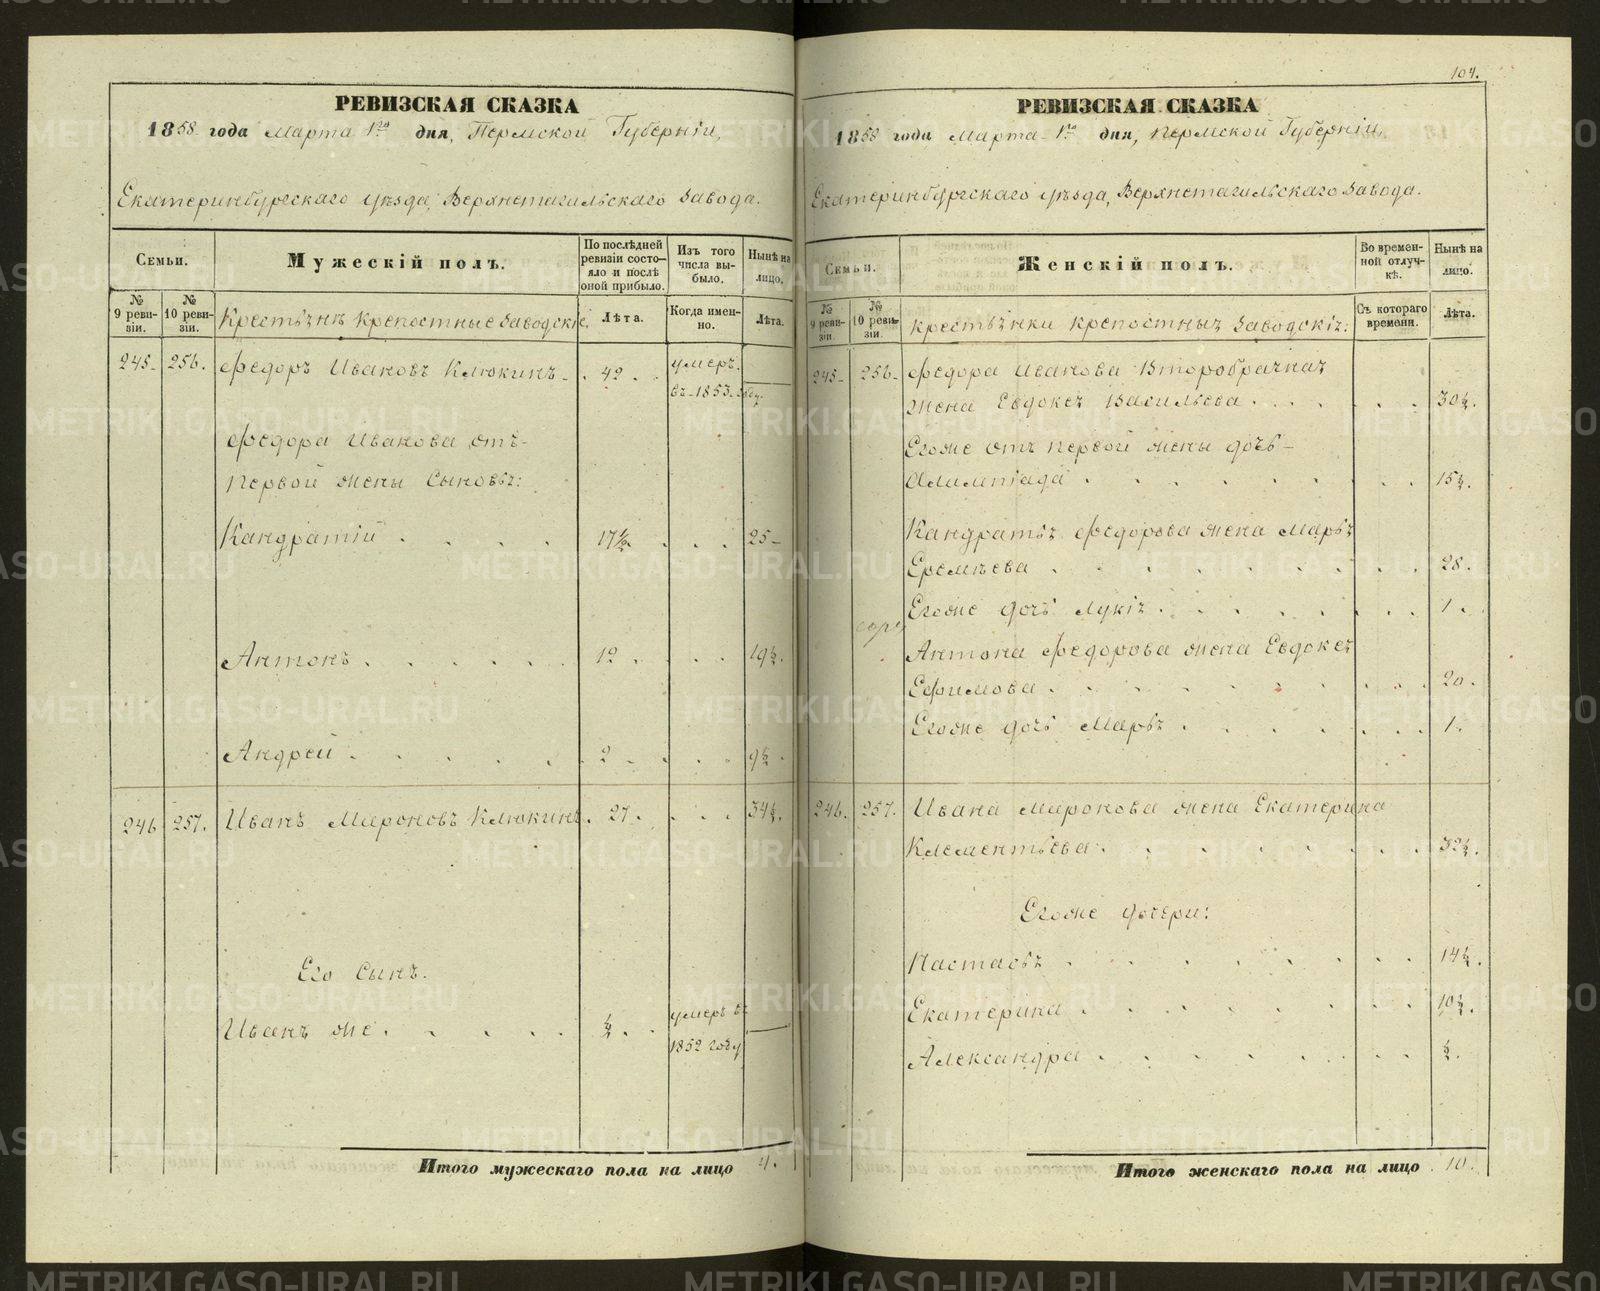 РЕВИЗСКАЯ СКАЗКА
1858 года Марта 1го дня, Пермской Губерніи,
Екатеринбургскаго уѣзда, Верхнетагильскаго завода.
Семьи.
Мужескій полъ.
По послѣдней ревизіи состояло и послѣ оной прибыло.
Изъ того числа выбыло.
Нынѣ на лицо.
№ 9 ревизіи.
№ 10 ревизіи.
Крестьянъ крепостные Заводскіе.
Лѣта.
Когда именно.
Лѣта.
245. 256. Федоръ Ивановъ Клюкинъ 42. умеръ
въ 1853 году.
Федора Иванова отъ
первой жены Сыновья:
Кандратій 17½ 25
Антонъ 12 19½.
Андрей 2 9½
246 257. Иванъ Мироновъ Клюкинъ. 27. 34½.
Его Сынъ.
Иванъ же ½ умеръ въ
1852 году
Итого мужескаго пола на лицо 4.
104.
РЕВИЗСКАЯ СКАЗКА
1858 года Марта 1го дня, Пермской Губерніи,
Екатеринбургскаго уѣзда, Верхнетагильскаго завода.
Семьи.
Женскій полъ.
Во временной отлучкѣ.
Нынѣ на лицо.
№ 9 ревизіи.
№ 10 ревизіи.
крестьянки крепостныя Заводскія:
Съ котораго времени.
Лѣта.
245 256. Федора Иванова Второбрачная
жена Евдокея Васильева 30½.
Егоже отъ первой жены дочь
Алимпіада 15½.
Кандратья Федорова жена Марья
Еремѣева 28.
Егоже дочь Лукія 1.
Антона Федорова жена Евдокея
Ефимова 20.
Егоже дочь Марья 1.
246. 257. Ивана Миронова жена Екатерина
Клементьева 32½.
Егоже дочери:
Настасья 14½.
Екатерина 10½.
Александра ½.
Итого женскаго пола на лицо 10.
METRIKI.GASO-URAL.RU